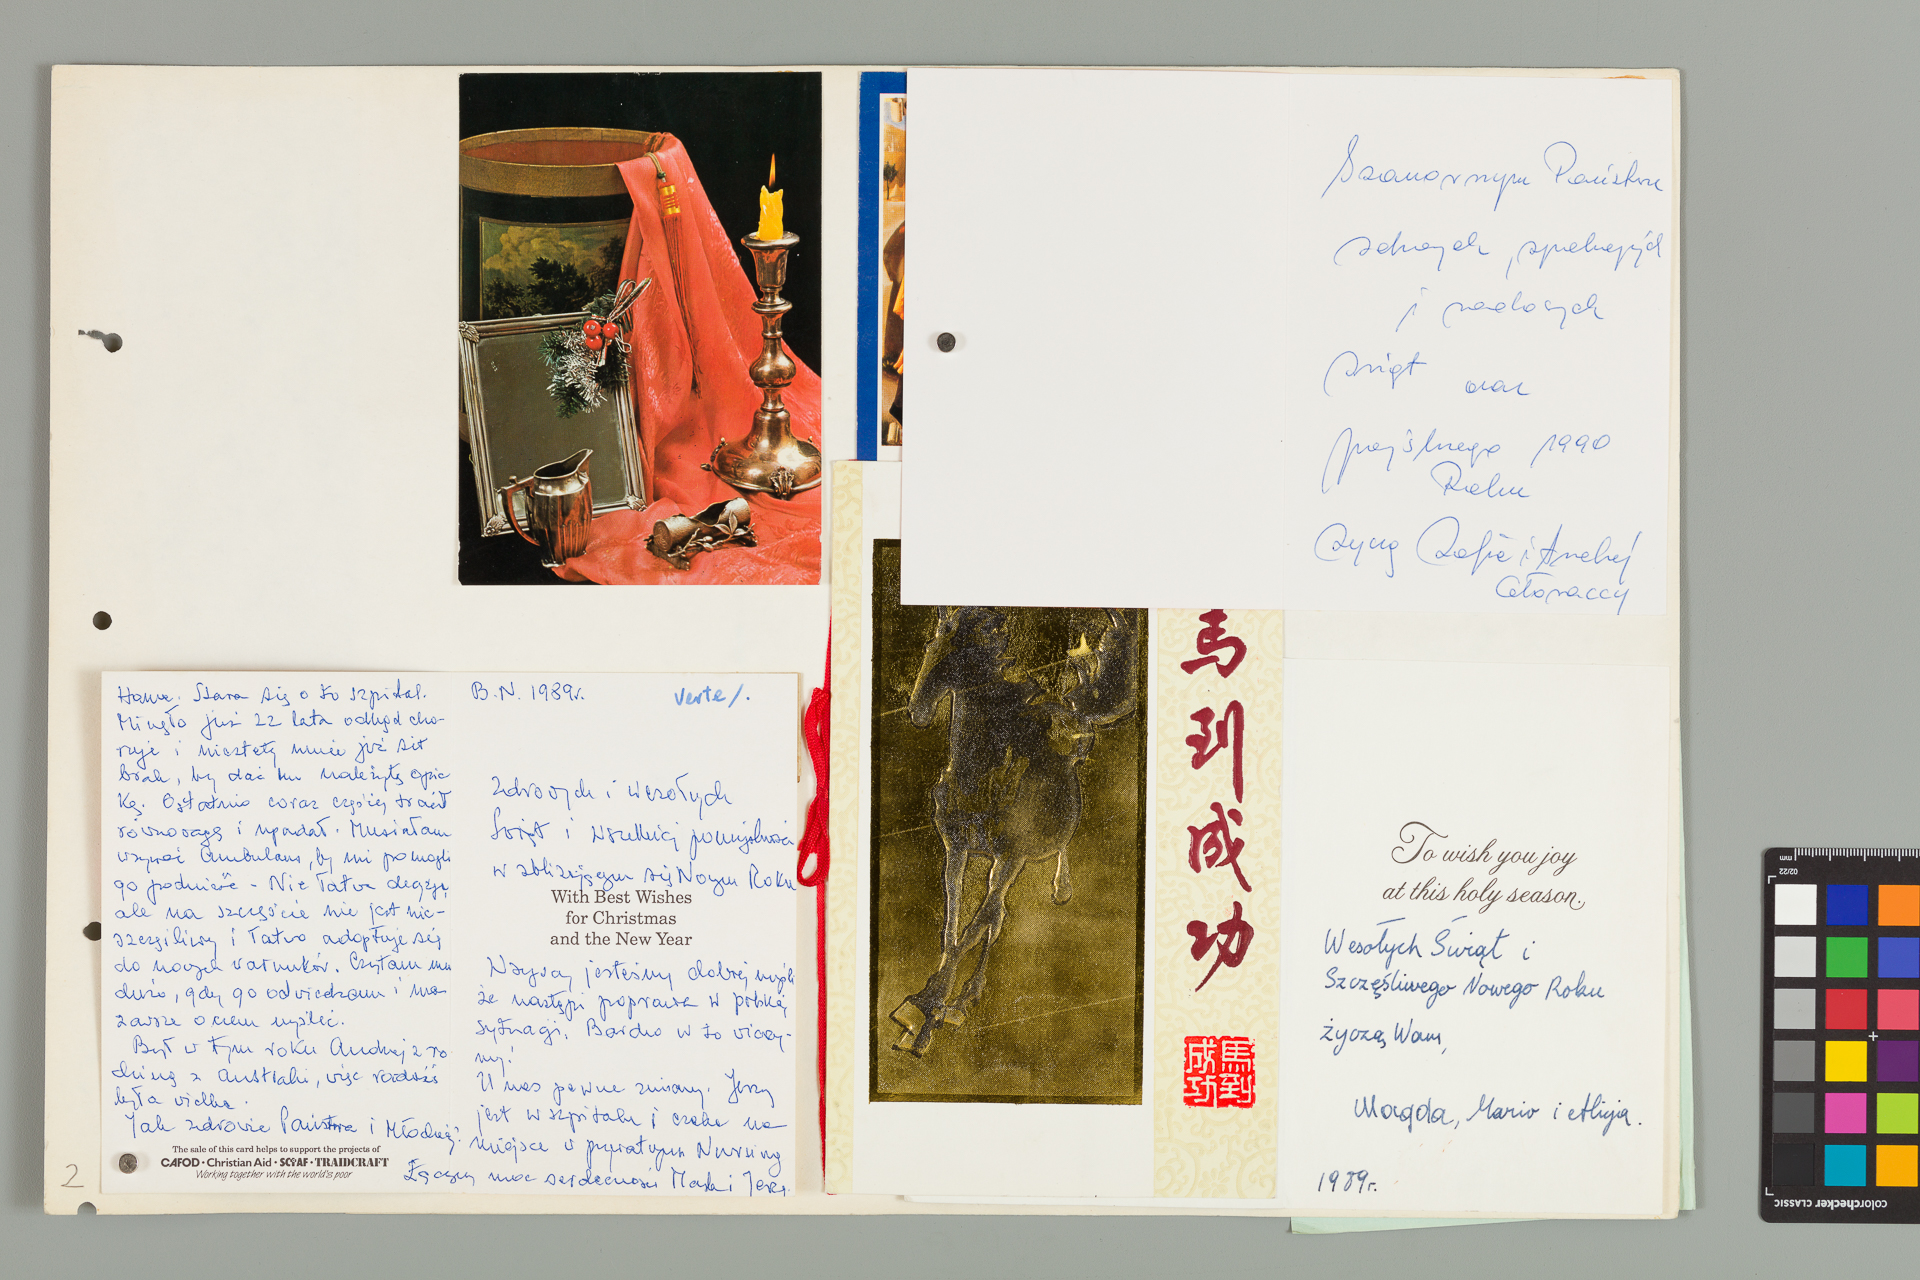 Szanownym Państwu
zdrowych, spokojnych
i radosnych
świąt oraz
pomyślnego 1990
Roku
życzą Zofia i Andrzej
馬到成功
馬到成功
To wish you joy
at this holy season.
Wesołych Świąt i
Szczęśliwego Nowego Roku
życzą Wam,
Magda, Mario i Alicja.
1989r.
B.N. 1989r. Verte/.
Zdrowych i Wesołych
Świąt i wszelkiej pomyślności
w zbliżającym się Nowym Roku
With Best Wishes
for Christmas
and the New Year
Wszyscy jesteśmy dobrej myśli
że nastąpi poprawa w polskiej
sytuacji. Bardzo w to wierzy-
my!
U nas pewne zmiany. Jerzy
jest w szpitalu i czeka na
miejsce w prywatnym Nursing
Home. Stara się o to szpital.
Minęło już 22 lata odkąd cho-
ruje i niestety mnie już sił
brak, by dać mu należytą opie-
kę. Ostatnio coraz częściej tracił
równowagę i upadał. Musiałam
wzywać ambulans, by mi pomogli
go podnieść - Nie łatwa decyzja,
ale na szczęście nie jest nie-
szczęśliwy i łatwo adoptuje się
do nowych warunków. Czytam mu
dużo, gdy go odwiedzam i ma
zawsze o czem myśleć.
Był w tym roku Andrzej z ro-
dziną z Australii, więc radość
była wielka.
Jak zdrowie Państwa i Młodzieży?
Łączymy moc serdeczności Mada i Jerzy
The sale of this card helps to support the projects of
CAFOD · Christian Aid · SCIAF · TRAIDCRAFT
Working together with the world's poor
2
mm
02/22
colorchecker CLASSIC